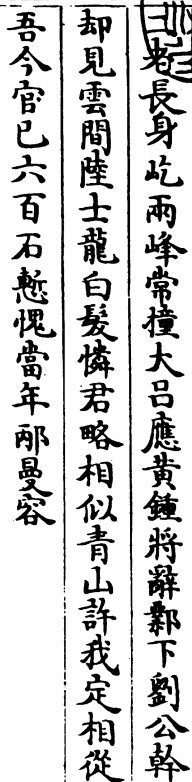 二老長身屹兩峰常撞大呂應黃鍾將辭鄴下劉公幹
却見雲間陸士龍白髮憐君略相似青山許我定相從
吾今官已六百石慙愧當年邴曼容